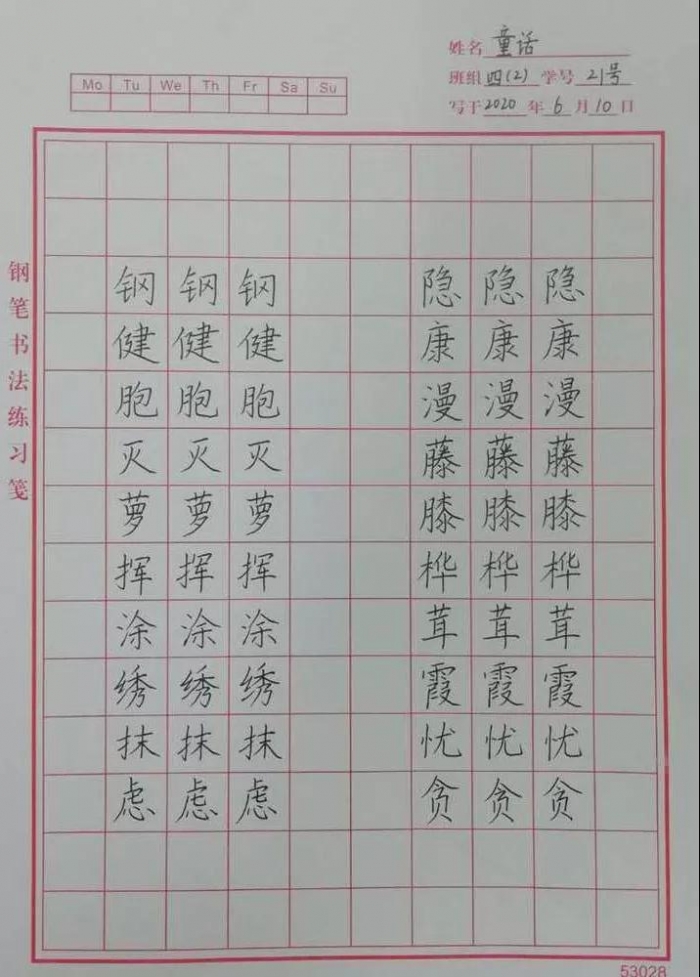 姓名 童话
班组 四(2) 学号 21号
写于 2020 年 6 月 10 日
Mo Tu We Th Fr Sa Su
钢笔书法练习笺
钢 钢 钢 隐 隐 隐
健 健 健 康 康 康
胞 胞 胞 漫 漫 漫
灭 灭 灭 藤 藤 藤
萝 萝 萝 膝 膝 膝
挥 挥 挥 桦 桦 桦
涂 涂 涂 茸 茸 茸
绣 绣 绣 霞 霞 霞
抹 抹 抹 忧 忧 忧
虑 虑 虑 贪 贪 贪
53028